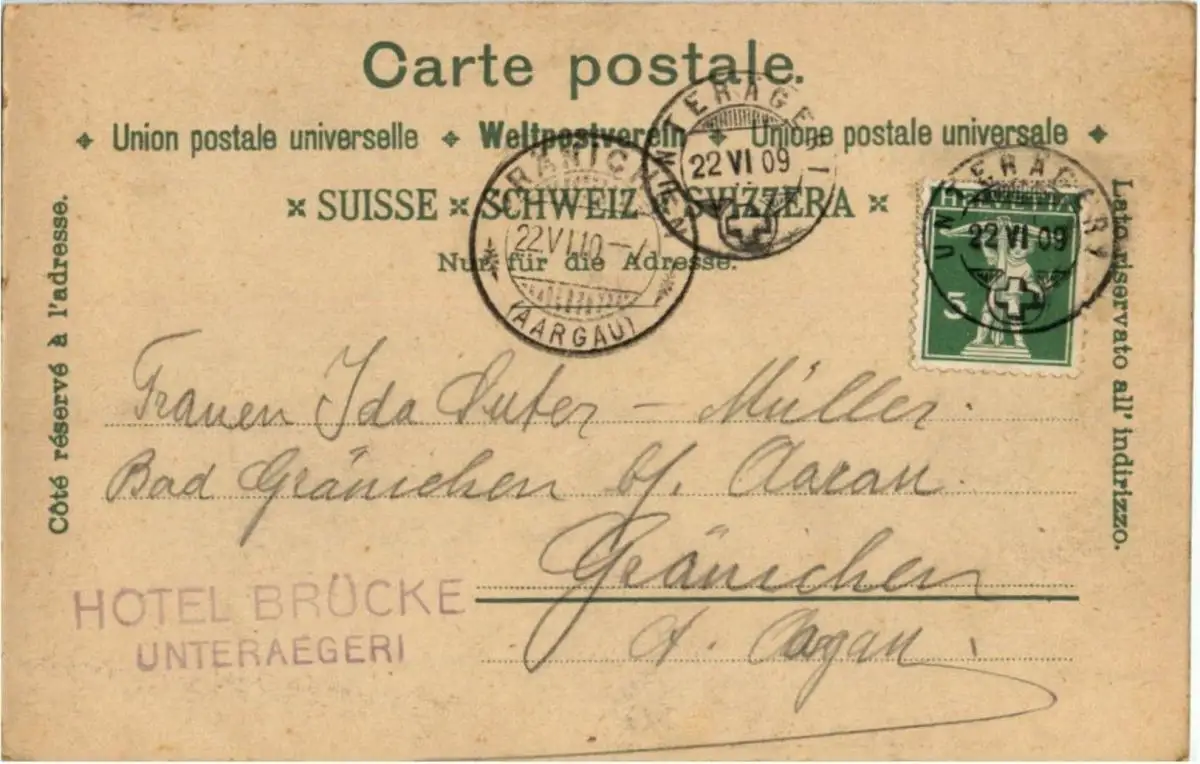 Carte postale.
✦ Union postale universelle ✦ Weltpostverein ✦ Unione postale universale ✦
× SUISSE × SCHWEIZ × SVIZZERA ×
Nur für die Adresse.
Côté réservé à l'adresse.
Lato riservato all' indirizzo.
UNTERÄGERI
22 VI 09
UNTERÄGERI
22 VI 09
GRÄNICHEN
22.VI.10-7
(AARGAU)
HELVETIA
5
Frauen Ida Suter - Müller.
Bad Gränichen b/. Aarau.
Gränichen
Kt. Aargau
HOTEL BRÜCKE
UNTERAEGERI